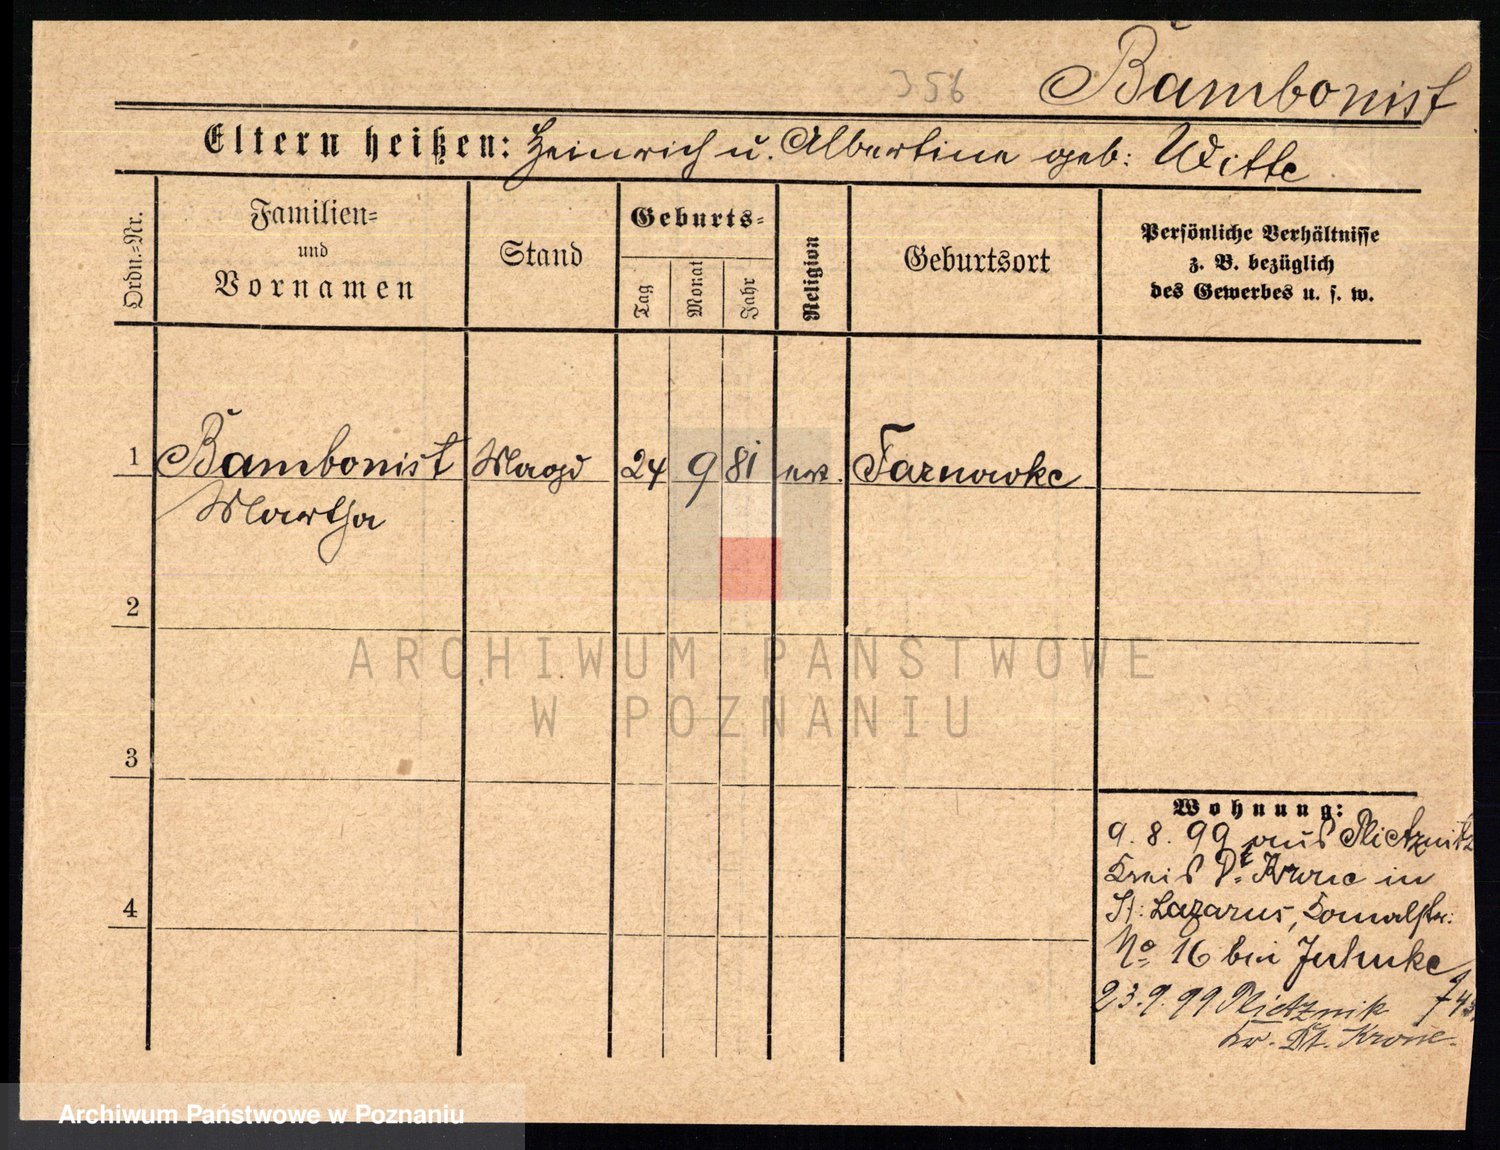 356
Bambonist
Eltern heißen: Heinrich u. Albertine geb: Witte
Ordn.=Nr.
Familien=
und
Vornamen
Stand
Geburts=
Tag
Monat
Jahr
Religion
Geburtsort
Persönliche Verhältnisse
z. B. bezüglich
des Gewerbes u. s. w.
1 Bambonist Magd 24 9 81 Tarnowke
Martha
2
3
4
Wohnung:
9. 8. 99 aus
Kreis Dt Krone in
St: Lazarus,
No 16 bei
23.9.99
Kr. Dt. Krone.
ARCHIWUM PAŃSTWOWE
W POZNANIU
Archiwum Państwowe w Poznaniu